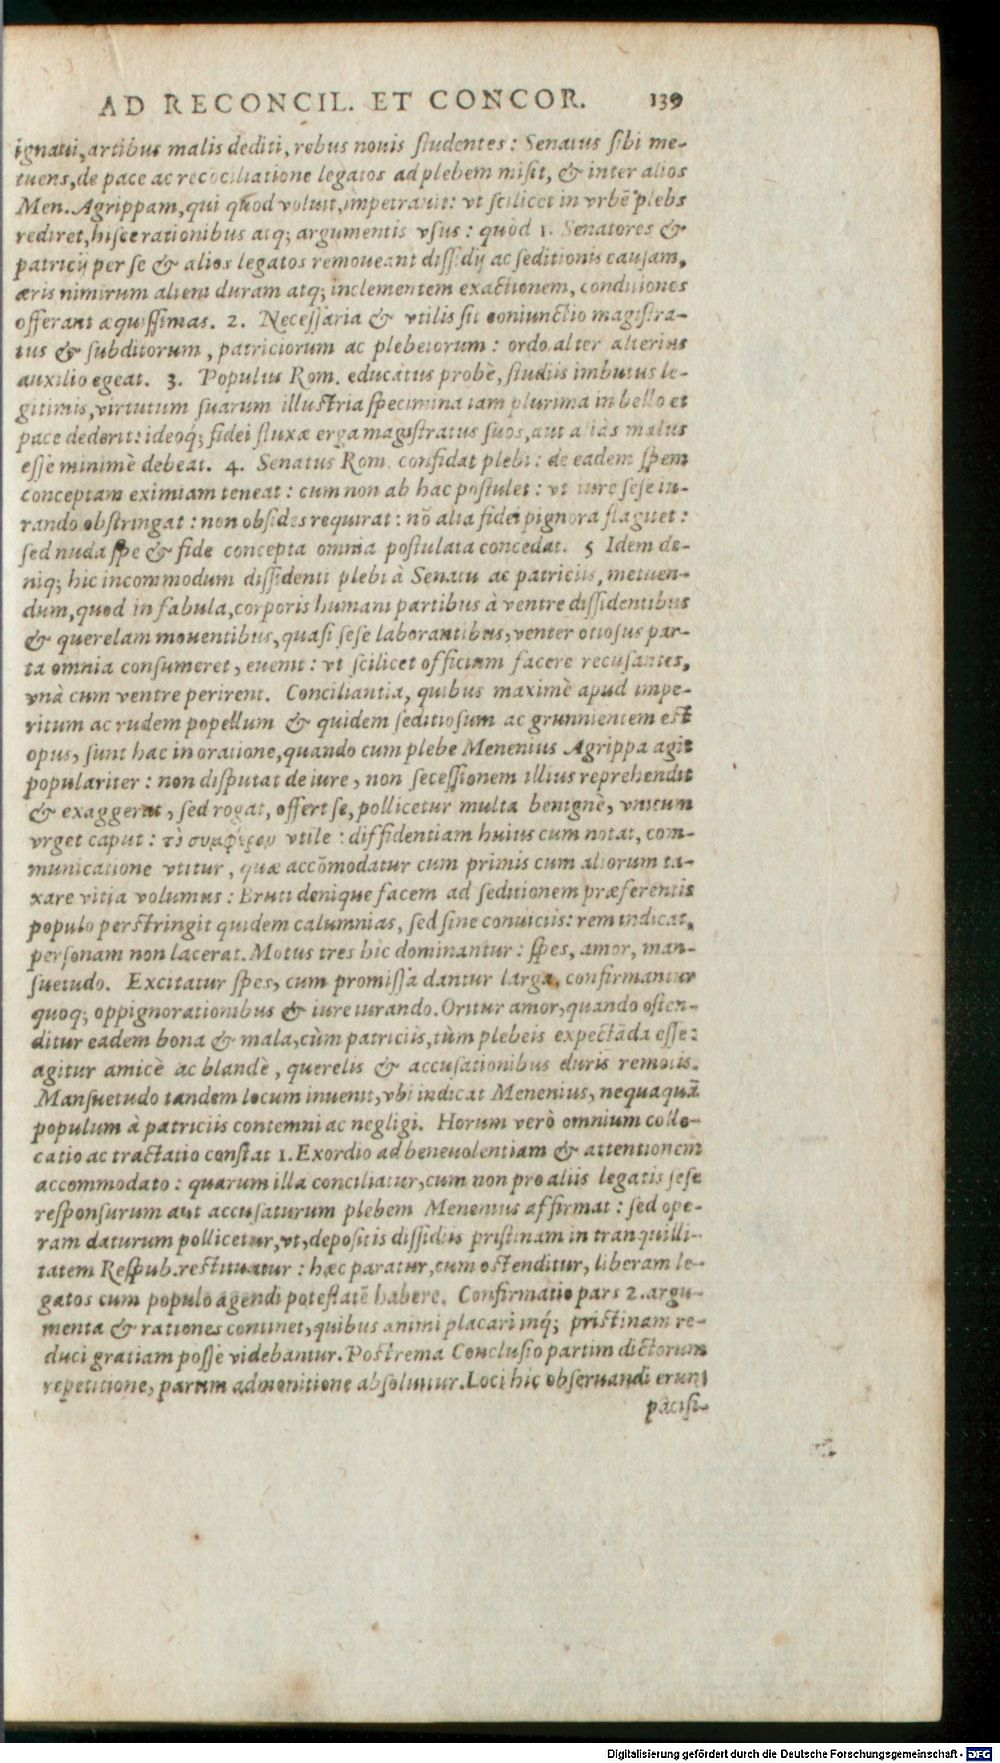 AD RECONCIL. ET CONCOR. 139
ignaui, artibus malis dediti, rebus nouis studentes: Senatus sibi me-
tuens, de pace ac recõciliatione legatos ad plebem misit, & inter alios
Men. Agrippam, qui quod voluit, impetrauit: vt scilicet in vrbẽ plebs
rediret, hisce rationibus atq; argumentis vsus: quòd 1. Senatores &
patricij per se & alios legatos remoueant dissidij ac seditionis causam,
æris nimirum alieni duram atq; inclementem exactionem, conditiones
offerant æquissimas. 2. Necessaria & vtilis sit coniunctio magistra-
tus & subditorum, patriciorum ac plebeiorum: ordo alter alterius
auxilio egeat. 3. Populus Rom. educatus probè, studiis imbutus le-
gitimis, virtutum suarum illustria specimina iam plurima in bello et
pace dederit: ideoq́; fidei fluxæ erga magistratus suos, aut aliàs malus
esse minimè debeat. 4. Senatus Rom. confidat plebi: de eadem spem
conceptam eximiam teneat: cum non ab hac postulet: vt iure sese iu-
rando obstringat: non obsides requirat: nõ alia fidei pignora flagitet:
sed nuda spe & fide concepta omnia postulata concedat. 5 Idem de-
niq; hic incommodum dissidenti plebi à Senatu ac patriciis, metuen-
dum, quod in fabula, corporis humani partibus à ventre dissidentibus
& querelam mouentibus, quasi sese laborantibus, venter otiosus par-
ta omnia consumeret, euenit: vt scilicet officium facere recusantes,
vnà cum ventre perirent. Conciliantia, quibus maximè apud impe-
ritum ac rudem popellum & quidem seditiosum ac grunnientem est
opus, sunt hac in oratione, quando cum plebe Menenius Agrippa agit
populariter: non disputat de iure, non secessionem illius reprehendit
& exaggerat, sed rogat, offert se, pollicetur multa benignè, vnicum
vrget caput: τὸ συμφέρον vtile: diffidentiam huius cum notat, com-
municatione vtitur, quæ accõmodatur cum primis cum aliorum ta-
xare vitia volumus: Bruti denique facem ad seditionem præferentis
populo perstringit quidem calumnias, sed sine conuiciis: rem indicat,
personam non lacerat. Motus tres hic dominantur: spes, amor, man-
suetudo. Excitatur spes, cum promissa dantur larga, confirmantur
quoq; oppignorationibus & iureiurando. Oritur amor, quando osten-
ditur eadem bona & mala, cùm patriciis, tùm plebeis expectãda esse:
agitur amicè ac blandè, querelis & accusationibus duris remotis.
Mansuetudo tandem locum inuenit, vbi indicat Menenius, nequaquã
populum à patriciis contemni ac negligi. Horum verò omnium collo-
catio ac tractatio constat 1. Exordio ad beneuolentiam & attentionem
accommodato: quarum illa conciliatur, cum non pro aliis legatis sese
responsurum aut accusaturum plebem Menenius affirmat: sed ope-
ram daturum pollicetur, vt, depositis dissidiis pristinam in tranquilli-
tatem Respub. restituatur: hæc paratur, cum ostenditur, liberam le-
gatos cum populo agendi potestatẽ habere. Confirmatio pars 2. argu-
menta & rationes continet, quibus animi placari inq́; pristinam re-
duci gratiam posse videbantur. Postrema Conclusio partim dictorum
repetitione, partim admonitione absoluitur. Loci hic obseruandi erunt
pacisi-
Digitalisierung gefördert durch die Deutsche Forschungsgemeinschaft - DFG